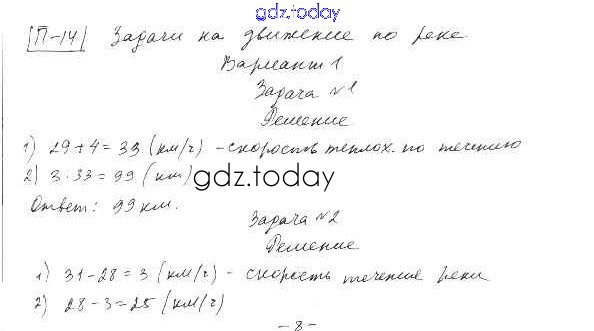 gdz.today
П-14 Задачи на движение по реке
Вариант 1
Задача №1
Решение
1) 29+4=33 (км/ч) - скорость теплох. по течению
2) 3·33=99 (км)
gdz.today
Ответ: 99 км.
Задача №2
Решение
1) 31-28=3 (км/ч) - скорость течение реки
2) 28-3=25 (км/ч)
- 8 -